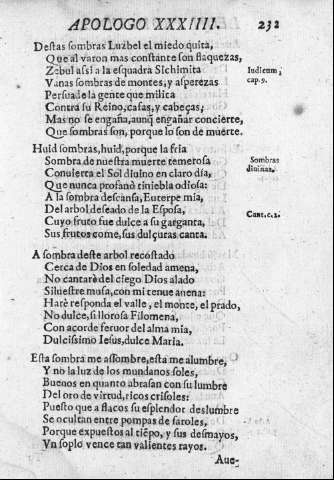 APOLOGO XXXIIII. 232
Destas sombras Luzbel el miedo quita,
Que al varon mas constante son flaquezas,
Zebul assi a la esquadra Sichimita
Vanas sombras de montes, y asperezas
Persuade la gente que milita
Contra su Reino, casas, y cabeças;
Mas no se engaña, aunq̃ engañar concierte,
Que sombras son, porque lo son de muerte.
Iudicum,
cap. 9.
Huid sombras, huid, porque la fria
Sombra de nuestra muerte temerosa
Conuierta el Sol diuino en claro dia,
Que nunca profanò tiniebla odiosa:
A la sombra descansa, Euterpe mia,
Del arbol deseado de la Esposa,
Cuyo fruto fue dulce a su garganta,
Sus frutos come, sus dulçuras canta.
Sombras
diuinas.
Cant. c. 2.
A sombra deste arbol recostado
Cerca de Dios en soledad amena,
No cantarè del ciego Dios alado
Siluestre musa, con mi tenue auena:
Harè responda el valle, el monte, el prado,
No dulce, si llorosa Filomena,
Con acorde feruor del alma mia,
Dulcissimo Iesus, dulce Maria.
Esta sombra me assombre, esta me alumbre,
Y no la luz de los mundanos soles,
Buenos en quanto abrasan con su lumbre
Del oro de virtud, ricos crisoles:
Puesto que a flacos su esplendor deslumbre
Se ocultan entre pompas de faroles,
Porque expuestos al tiẽpo, y sus desmayos,
Vn soplo vence tan valientes rayos.
Aue-